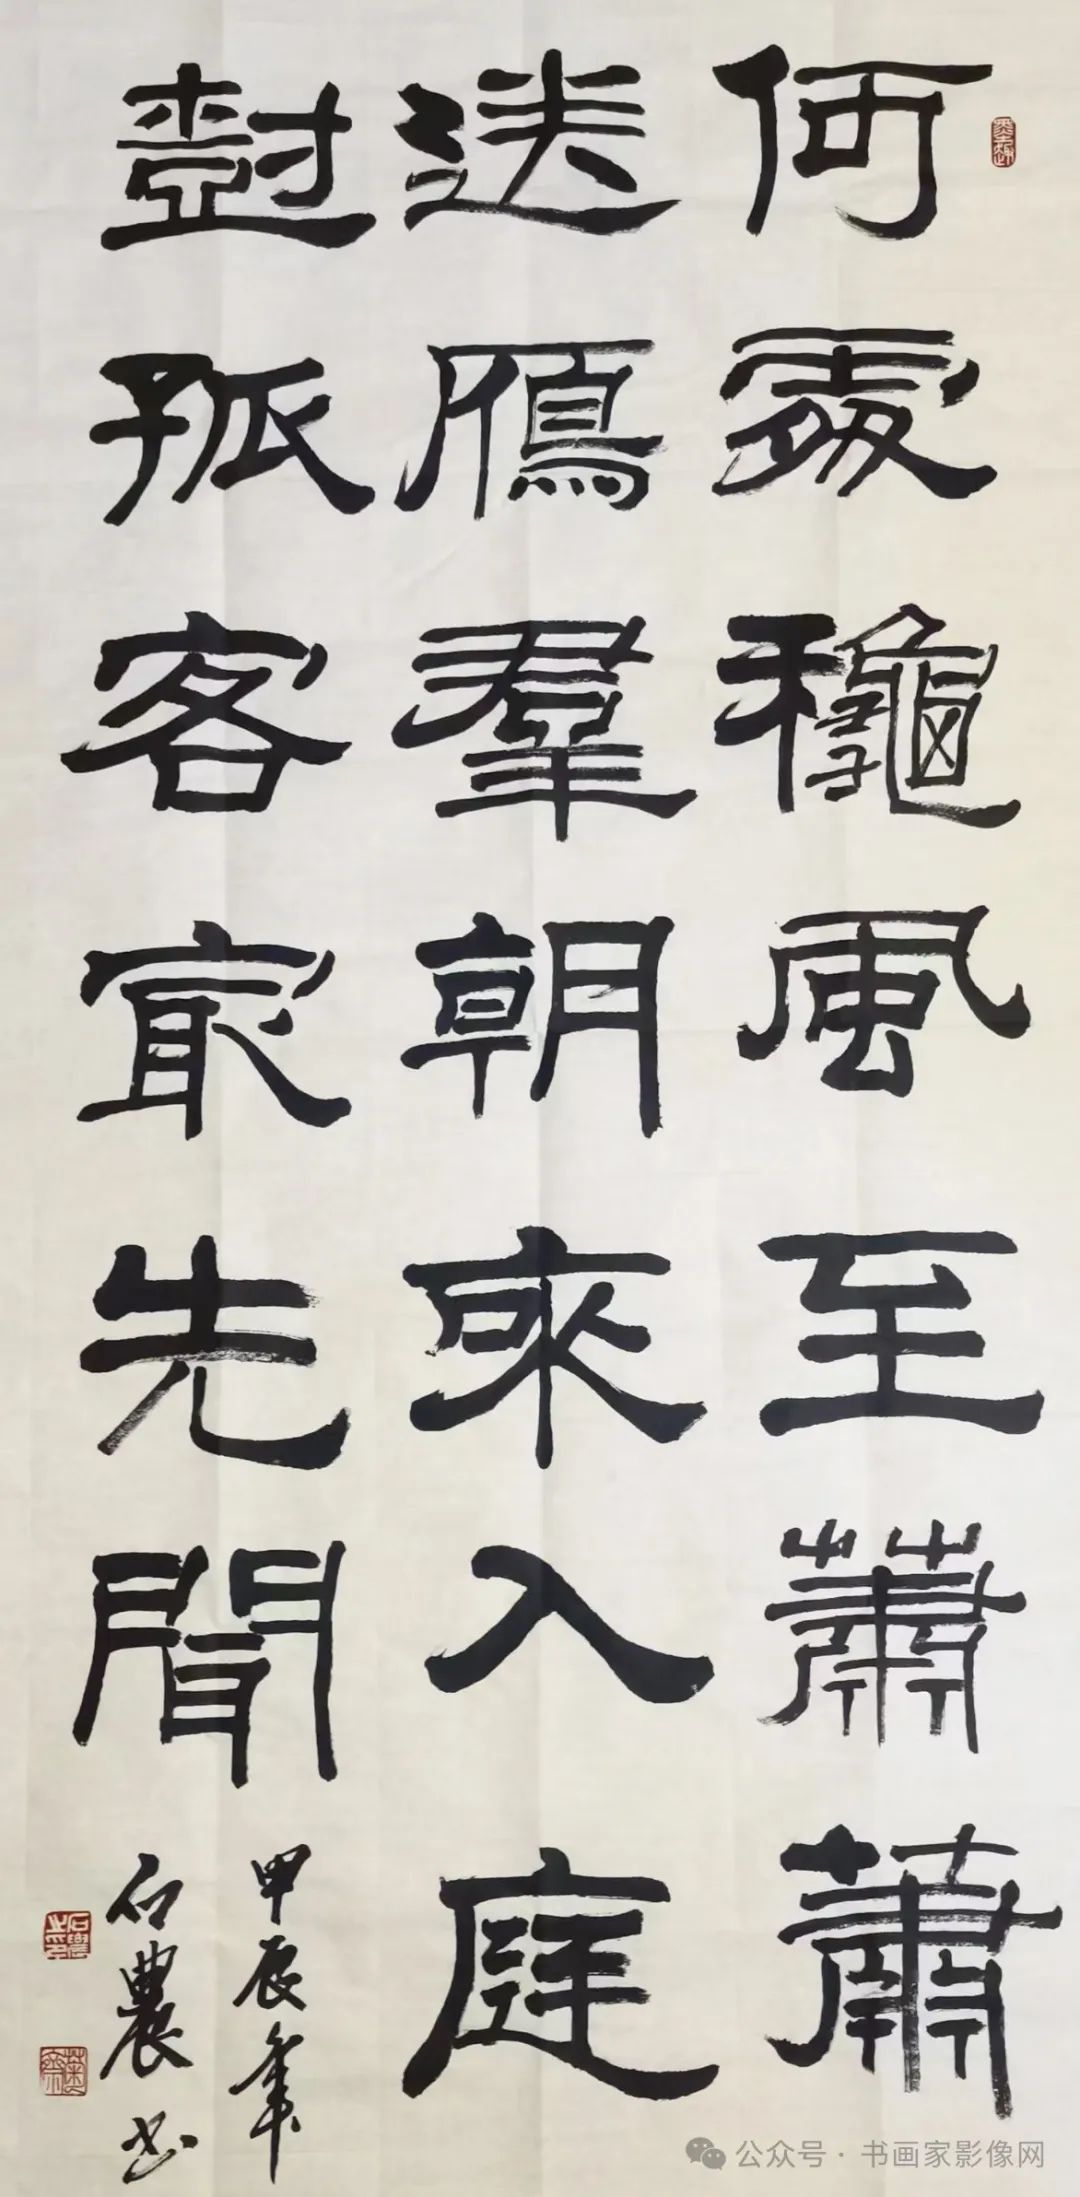 何處龝風至蕭蕭
送鴈羣朝來入庭
樹孤客最先聞
甲辰年
石農书
公众号·书画家影像网